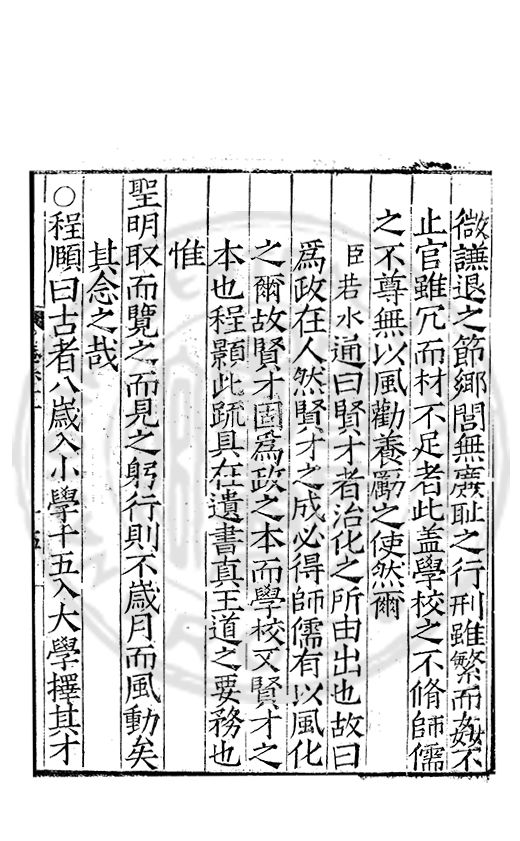 微謙退之節鄉閭無廉恥之行刑雖繁而姦不
止官雖冗而材不足者此盖學校之不脩師儒
之不尊無以風勸養勵之使然爾
臣若水通曰賢才者治化之所由出也故曰
爲政在人然賢才之成必得師儒有以風化
之爾故賢才固爲政之本而學校又賢才之
本也程顥此䟽具在遺書真王道之要務也
惟
聖明取而覽之而見之躬行則不歲月而風動矣
其念之哉
○程頤曰古者八歲入小學十五入大學擇其才